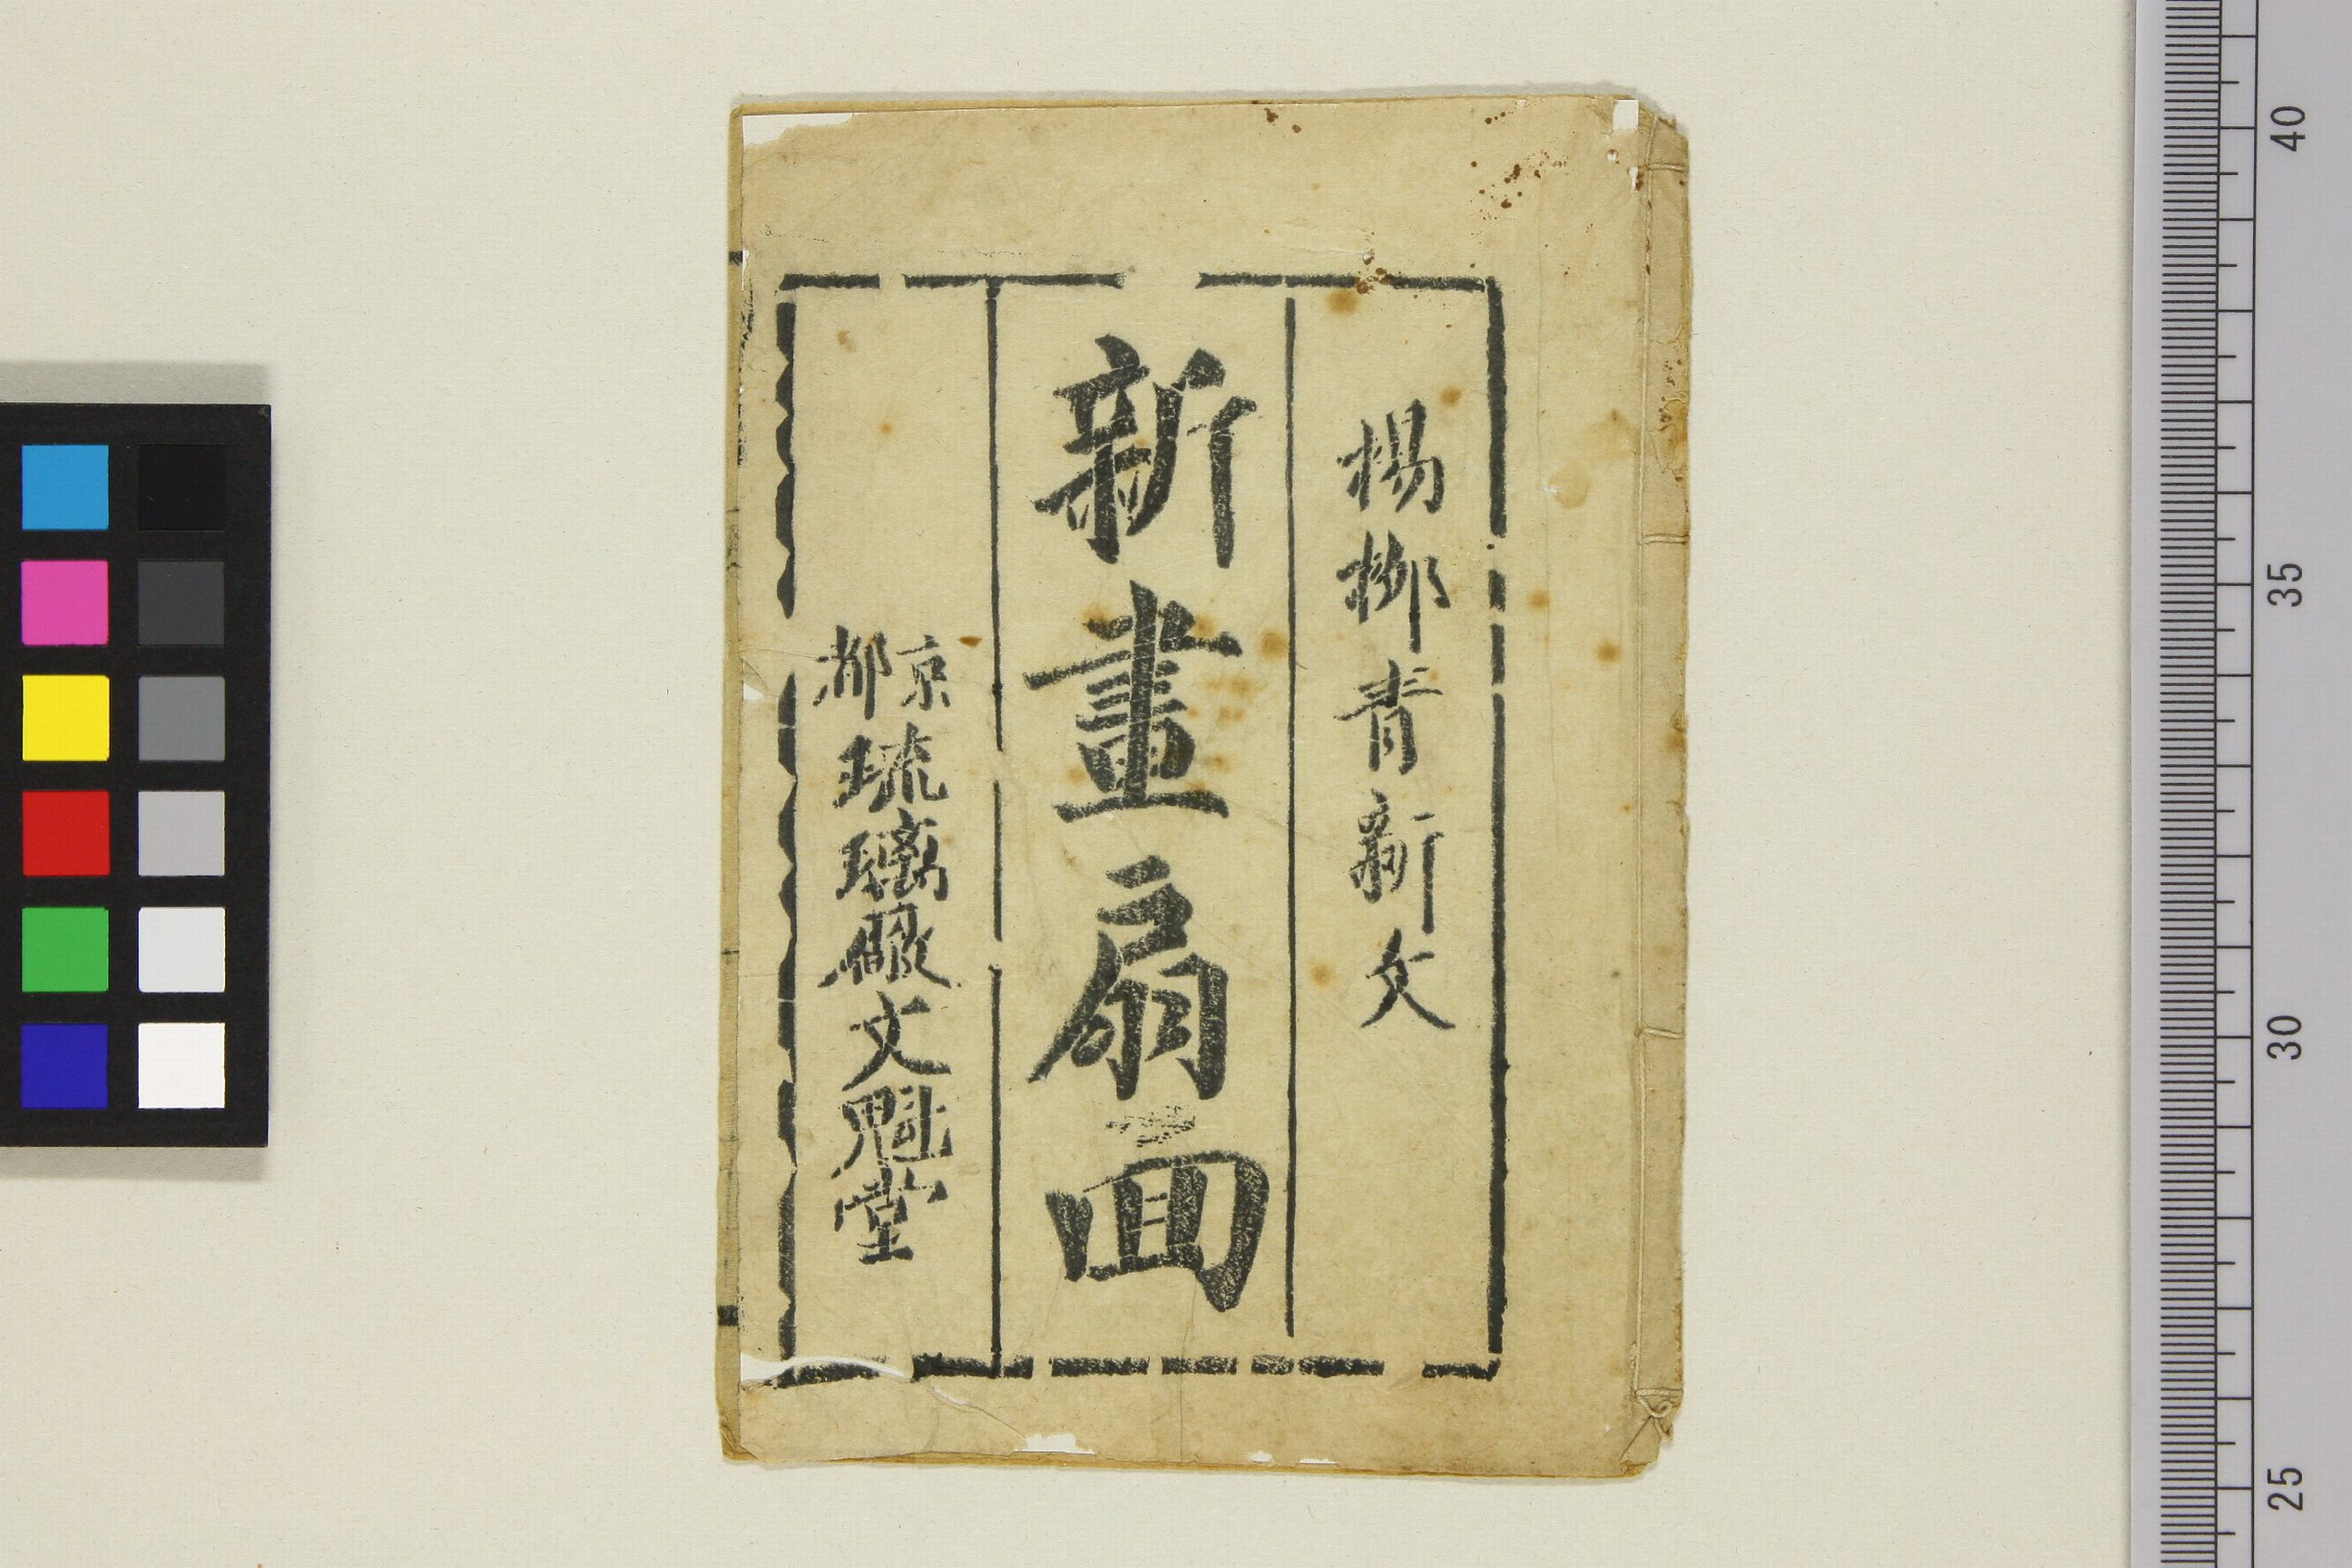 楊柳青新文
新畫扇面
京都琉璃厰文魁堂
40
35
30
25